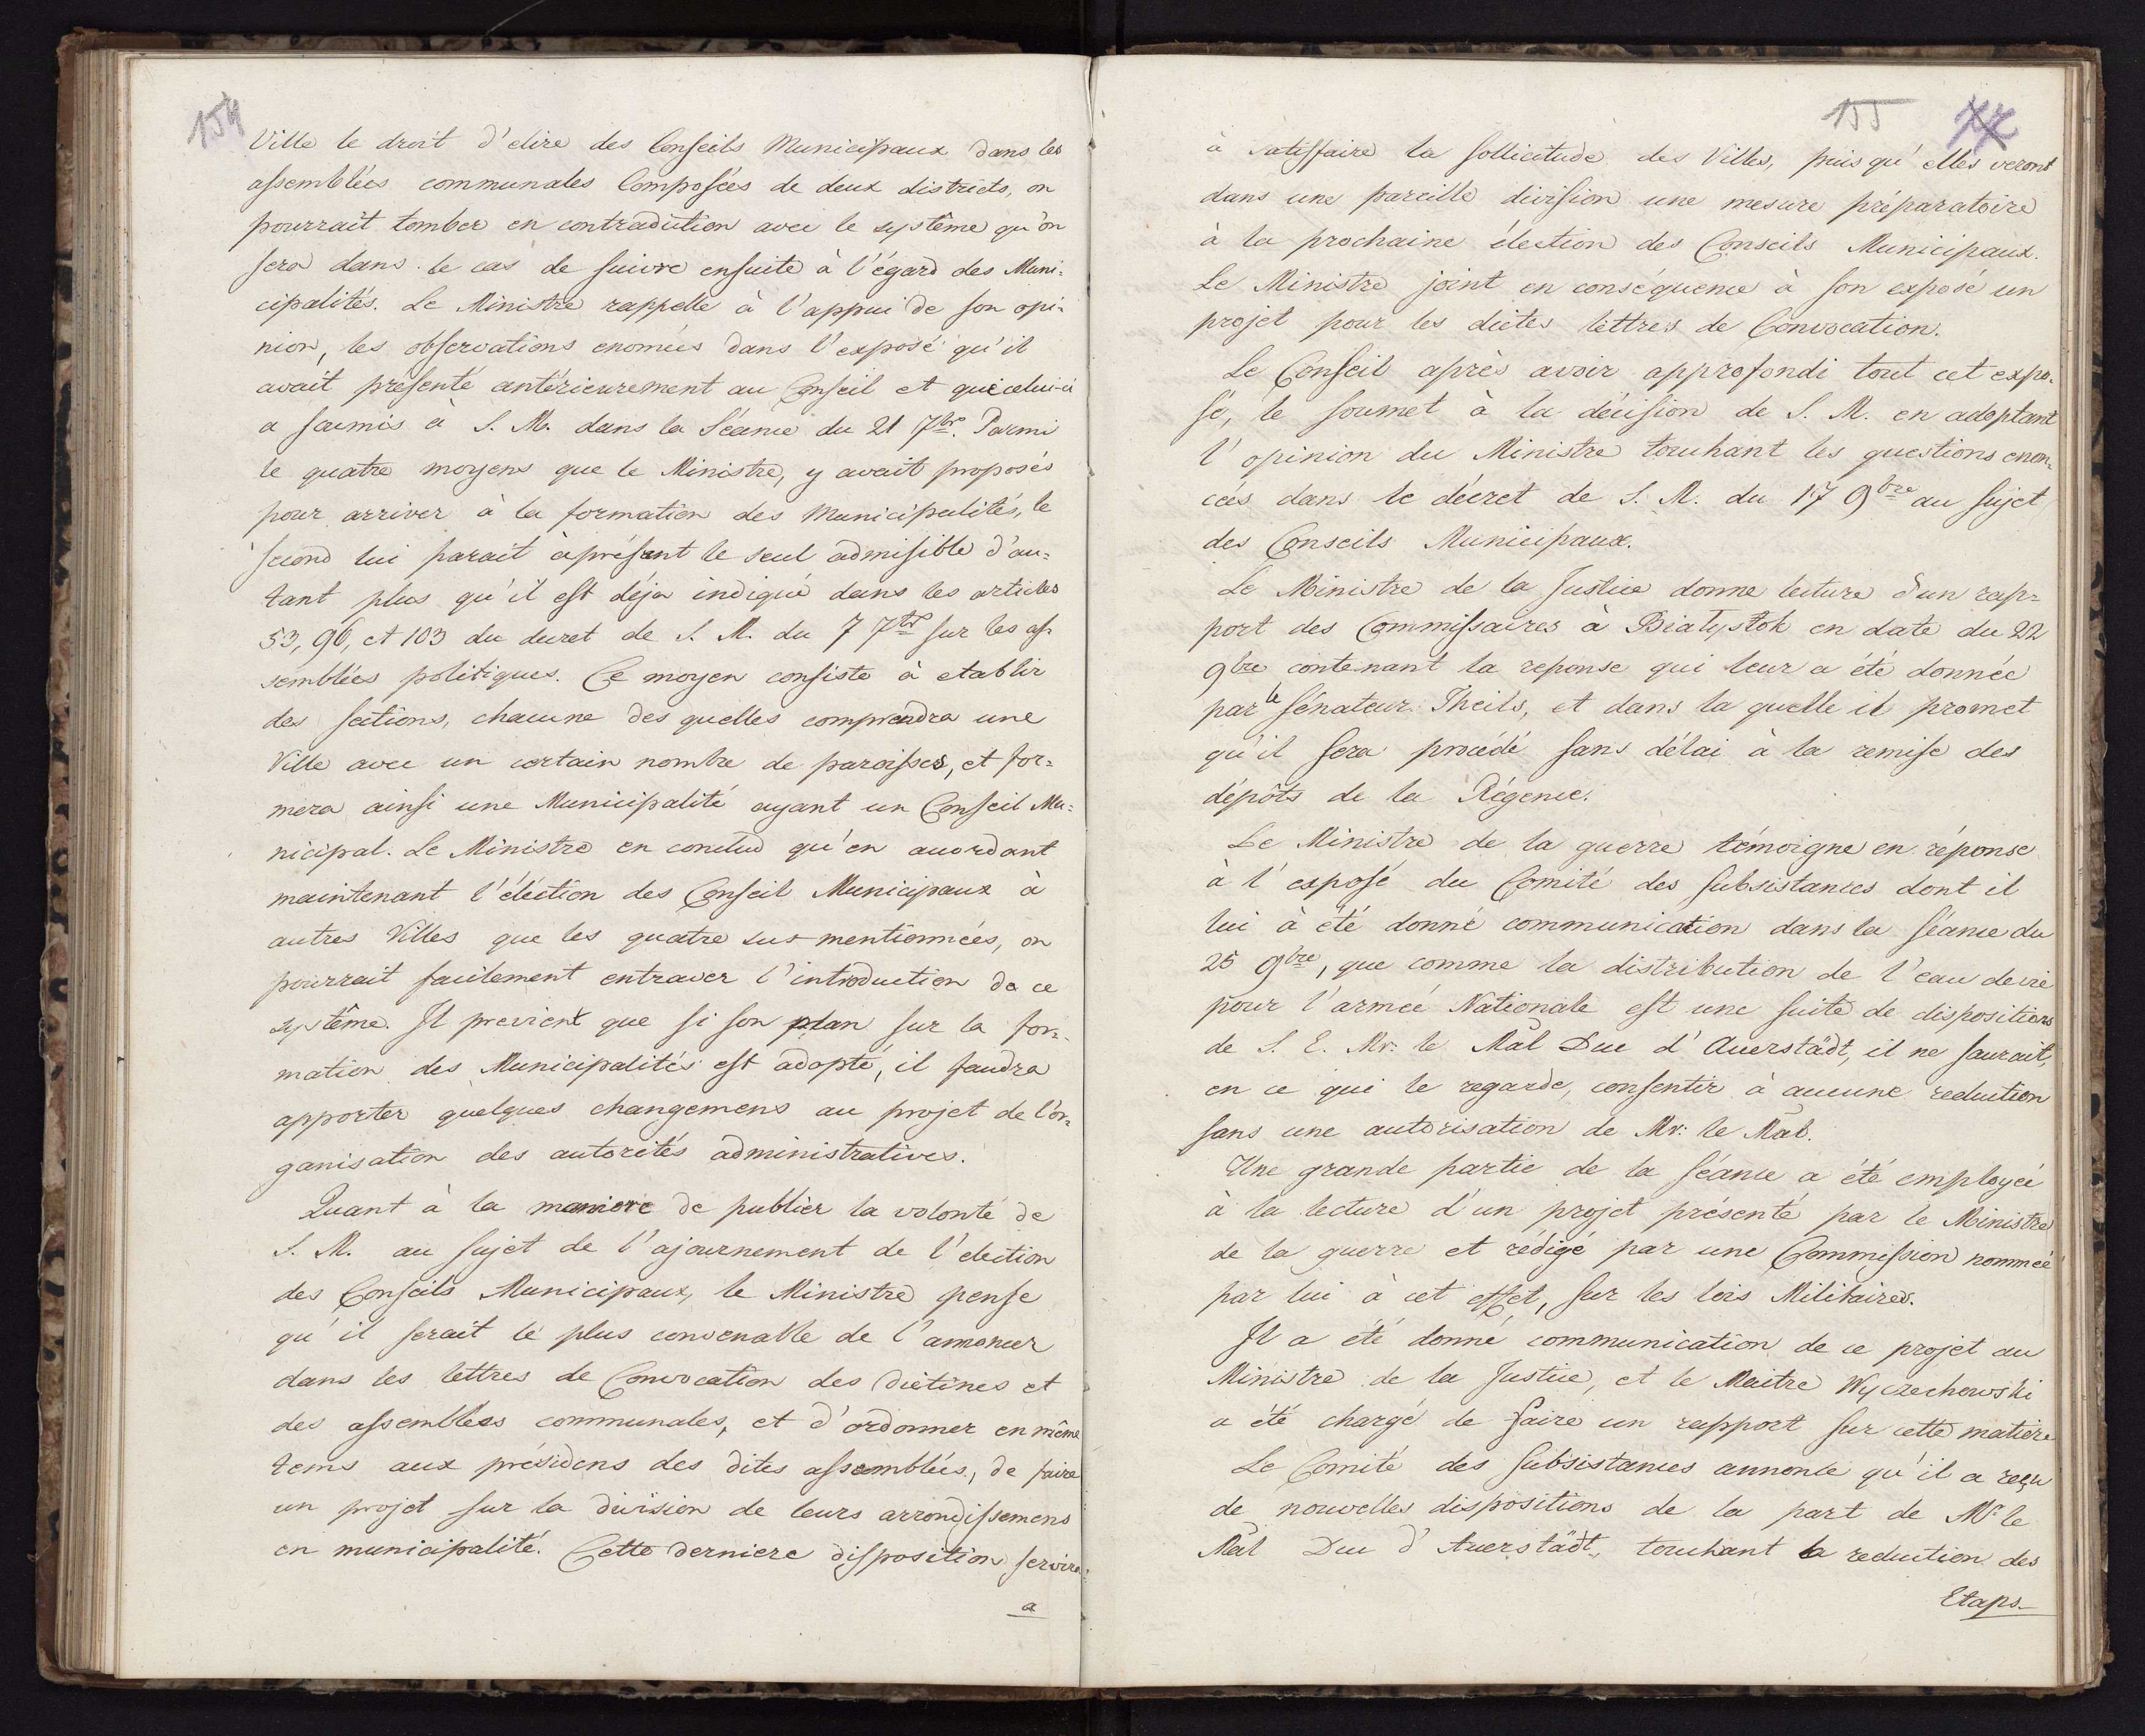 154
Ville le droit d'elire des Conseils Municipaux dans les
assemblées communales Composées de deux districts, on
pourrait tomber en contradiction avec le système qu'on
sera dans le cas de suivre ensuite à l'égard des Muni=
cipalités. Le Ministre rappelle à l'appui de son opi=
nion, les observations enomcés dans l'exposé qu'il
avait présenté antérieurement au Conseil et que celui-ci
a soumis à S. M. dans la Séance du 21 7bre. Parmi
le quatre moyens que le Ministre, y avait proposés
pour arriver à la formation des Municipalités, le
second lui parait àprésent le seul admisible d'au=
tant plus qu'il est déja indiqué dans les articles
53, 96, et 103 du decret de S. M. du 7 7br sur les as-
semblées politiques. Ce moyen consiste à etablir
des sections, chacune des quelles comprendra une
Ville avec un certain nombre de paroisses, et for=
mera ainsi une Municipalité ayant un Conseil Mu=
nicipal. Le Ministre en conclud qu'en accordant
maintenant l'élection des Conseil Municipaux à
autres Villes que les quatre sus-mentionnées, on
pourrait facilement entraver l'introduction de ce
système. Il previent que si son plan sur la for=
mation des Municipalités est adopté, il faudra
apporter quelques changemens au projet de l'or=
ganisation des autorités administratives.
Quant à la maniere de publier la volonté de
S. M. au sujet de l'ajournement de l'election
des Conseils Municipaux, le Ministre pense
qu'il serait le plus convenable de l'annoncer
dans les lettres de Convocation des diètines et
des assemblées communales, et d'ordonner en même
tems aux présidens des dites assemblées, de faire
un projet sur la division de leurs arrondissemens
en municipalité. Cette derniere disposition servira
a
155 77
à satisfaire la sollicitude des Villes, puis qu'elles veront
dans une pareille division une mesure préparatoire
à la prochaine élection des Conseils Municipaux.
Le Ministre joint en conséquence à son exposé un
projet pour les diètes lettres de Convocation.
Le Conseil après avoir approfondi tout cet expo=
sé, le soumet à la décision de S. M. en adoptant
l'opinion du Ministre touchant les questions enon=
cées dans le décret de S. M. du 17 9bre au sujet
des Conseils Municipaux.
Le Ministre de la Justice donne lecture d'un rap=
port des Commissaires à Białystok en date du 22
9bre contenant la reponse qui leur a été donnée
par le Sénateur Theils, et dans la quelle il promet
qu'il sera procédé sans délai à la remise des
dépôts de la Régence.
Le Ministre de la guerre témoigne en réponse
à l'exposé du Comité des subsistances dont il
lui à été donné communication dans la séance du
25 9bre, que comme la distribution de l'eau de vie
pour l'armée Nationale est une suite de dispositions
de S. E. Mr: le Mal Duc d'Auerstädt, il ne saurait,
en ce qui le regarde, consentir à aucune reduction
sans une autorisation de Mr: le Mal.
Une grande partie de la séance a été employée
à la lecture d'un projet présenté par le Ministre
de la guerre et rédigé par une Commission nommée
par lui à cet effet, sur les lois Militaires.
Il a été donné communication de ce projet au
Ministre de la Justice, et le Maitre Wyczechowski
a été chargé de faire un rapport sur cette matiere
Le Comité des subsistances annonce qu'il a reçu
de nouvelles dispositions de la part de Mr le
Mal Duc d'Auerstädt, touchant la reduction des
Etaps.